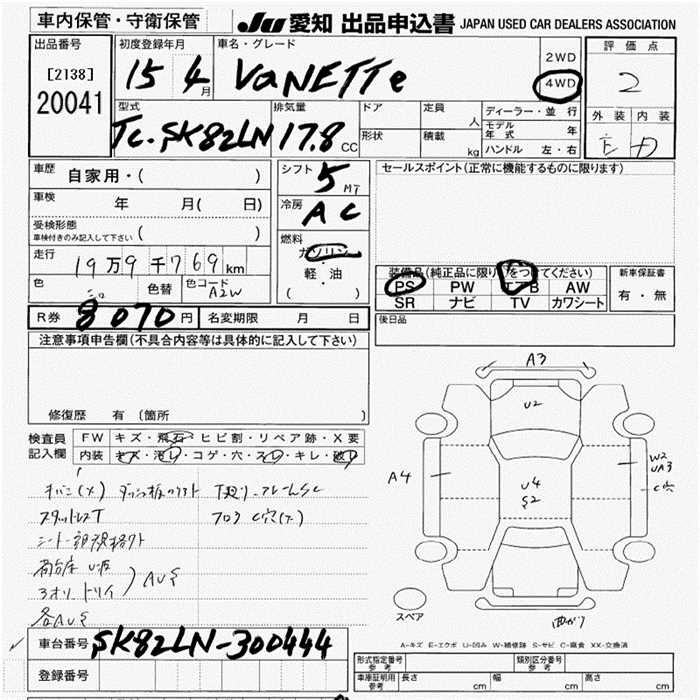 車内保管・守衛保管
JU 愛知 出品申込書 JAPAN USED CAR DEALERS ASSOCIATION
出品番号
[2138]
20041
初度登録年月
15 4 月
車名・グレード
VaNETTe
2WD
4WD
評価点
2
外装 内装
E D
型式
TC-SK82LN
排気量
17.8 CC
ドア
形状
定員 人
積載 kg
ディーラー・並行
モデル年式 年
ハンドル 左・右
車歴 自家用・( )
車検 年 月( 日)
受検形態
車検付きのみ記入して下さい ( )
走行 19万9千769km
色 シロ 色替 色コード A2W
シフト 5 MT
冷房 AC
燃料 ガソリン
・軽・油
( )
セールスポイント(正常に機能するものに限ります)
装備品(純正品に限り をつけてください)
PS PW AW
SR ナビ TV カワシート
新車保証書
有・無
R券 8070円 名変期限 月 日
後日品
注意事項申告欄(不具合内容等は具体的に記入して下さい)
修復歴 有 (箇所 )
検査員記入欄
FW キズ・飛石・ヒビ割・リペア跡・X要
内装 キズ・汚レ・コゲ・穴・スレ・キレ・破レ
スタッドレスT
フロア C穴(大)
AUS
各AUS
A3
U2
A4
U4
S2
W2
UA3
C穴
曲がり
スペア
A-キズ E-エクボ U-凹み W-補修跡 S-サビ C-腐食 XX-交換済
車台番号 SK82LN-300444
登録番号
形式指定番号 参考
類別区分番号 参考
車庫証明用 参考 長さ cm 幅 cm 高さ cm